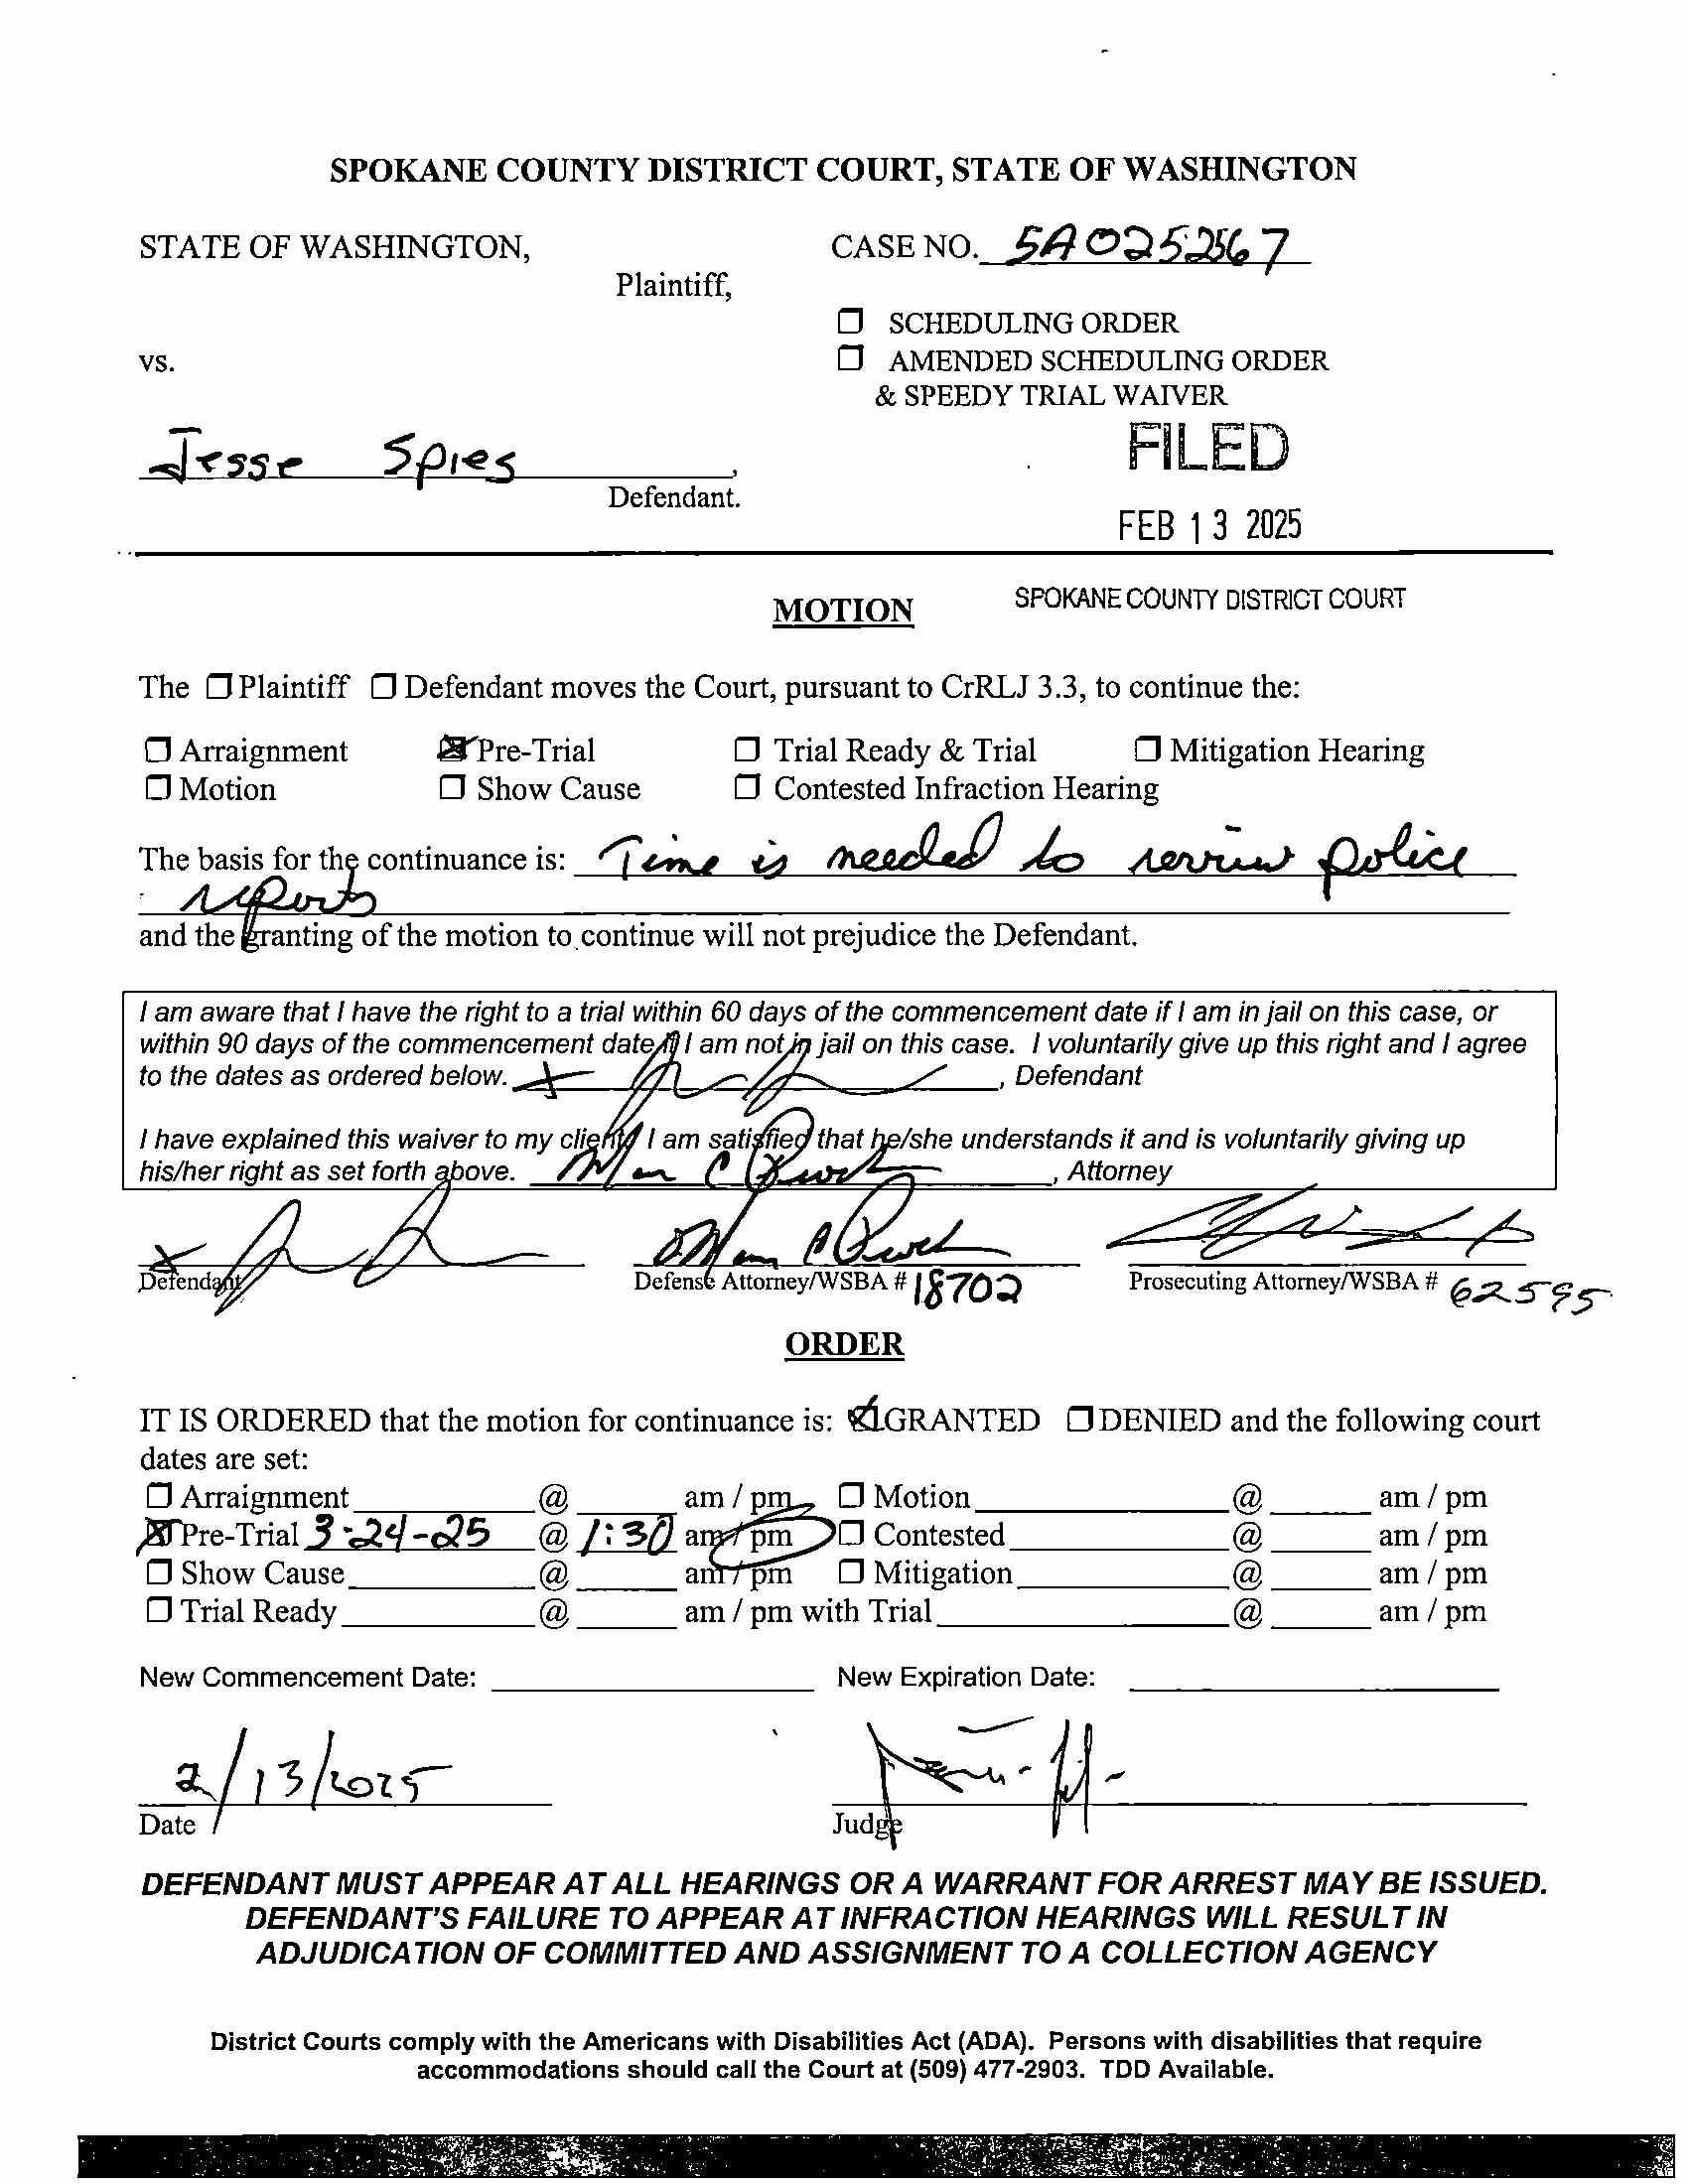 SPOKANE COUNTY DISTRICT COURT, STATE OF WASHINGTON
STATE OF WASHINGTON,
Plaintiff,
CASE NO. 5A0252567
☐ SCHEDULING ORDER
☐ AMENDED SCHEDULING ORDER
& SPEEDY TRIAL WAIVER
vs.
Jesse Spies,
Defendant.
FILED
FEB 13 2025
SPOKANE COUNTY DISTRICT COURT
MOTION
The ☐ Plaintiff ☐ Defendant moves the Court, pursuant to CrRLJ 3.3, to continue the:
☐ Arraignment ☒ Pre-Trial ☐ Trial Ready & Trial ☐ Mitigation Hearing
☐ Motion ☐ Show Cause ☐ Contested Infraction Hearing
The basis for the continuance is: Time is needed to review police
reports
and the granting of the motion to continue will not prejudice the Defendant.
I am aware that I have the right to a trial within 60 days of the commencement date if I am in jail on this case, or
within 90 days of the commencement date if I am not in jail on this case. I voluntarily give up this right and I agree
to the dates as ordered below. x , Defendant
I have explained this waiver to my client / I am satisfied that he/she understands it and is voluntarily giving up
his/her right as set forth above. , Attorney
x
Defendant
Defense Attorney/WSBA # 18702
Prosecuting Attorney/WSBA # 62595
ORDER
IT IS ORDERED that the motion for continuance is: ☒ GRANTED ☐ DENIED and the following court
dates are set:
☐ Arraignment @ am / pm ☐ Motion @ am / pm
☒ Pre-Trial 3-24-25 @ 1:30 am / pm ☐ Contested @ am / pm
☐ Show Cause @ am / pm ☐ Mitigation @ am / pm
☐ Trial Ready @ am / pm with Trial @ am / pm
New Commencement Date: New Expiration Date:
2/13/2025
Date
Judge
DEFENDANT MUST APPEAR AT ALL HEARINGS OR A WARRANT FOR ARREST MAY BE ISSUED.
DEFENDANT'S FAILURE TO APPEAR AT INFRACTION HEARINGS WILL RESULT IN
ADJUDICATION OF COMMITTED AND ASSIGNMENT TO A COLLECTION AGENCY
District Courts comply with the Americans with Disabilities Act (ADA). Persons with disabilities that require
accommodations should call the Court at (509) 477-2903. TDD Available.